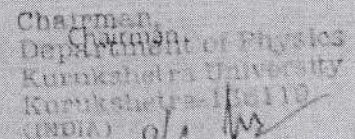 Chairman,
Chairman,
Department of Physics
Kurukshetra University
Kurukshetra-136119
(INDIA)